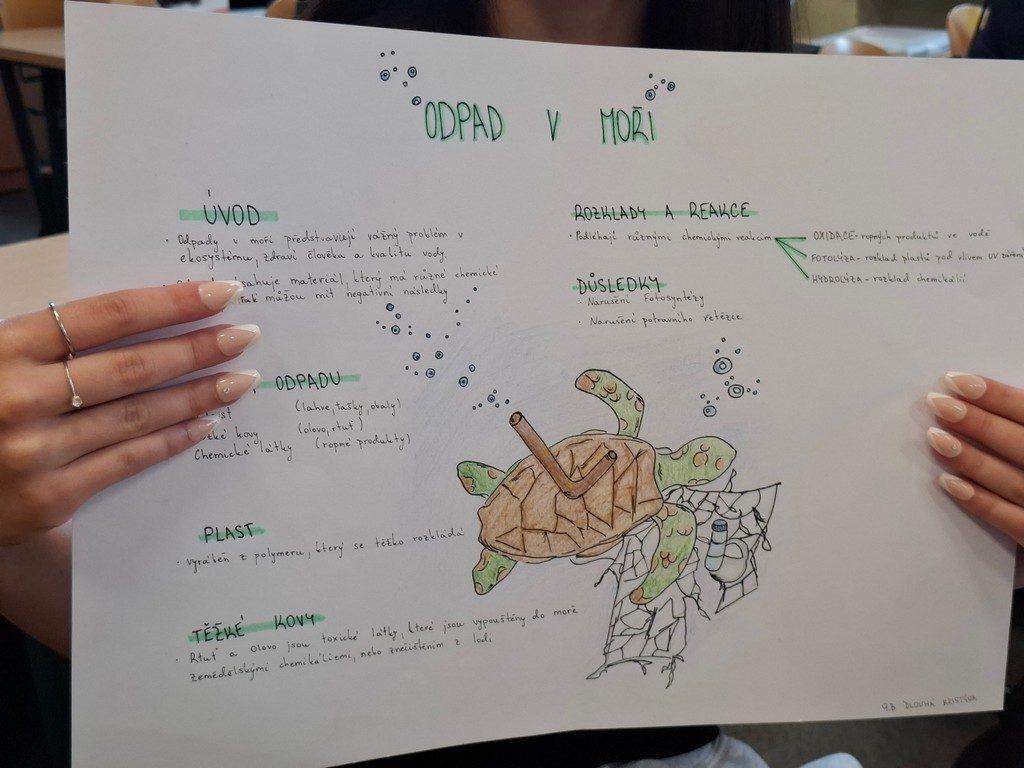 ODPAD V MOŘI
ÚVOD
· Odpady v moři představují vážný problém v
ekosystému, zdraví člověka a kvalitu vody.
sahuje materiál, který má různé chemické
můžou mít negativní následky
ODPADU
(lahve, tašky, obaly)
kovy (olovo, rtuť)
Chemické látky (ropné produkty)
PLAST
· vyráběn z polymeru, který se těžko rozkládá
TĚŽKÉ KOVY
· Rtuť a olovo jsou toxické látky, které jsou vypouštěny do moře
zemědelskými chemikáliemi, nebo znečištěním z lodí
ROZKLADY A REAKCE
· Podléhají různými chemickými reakcím
OXIDACE- ropných produktů ve vodě
FOTOLÝZA- rozklad plastů pod vlivem UV záření
HYDROLÝZA - rozklad chemikálií
DŮSLEDKY
· Narušení Fotosyntézy
· Narušení potravního řetězce
9.B DLOUHÁ KRISTÝNA